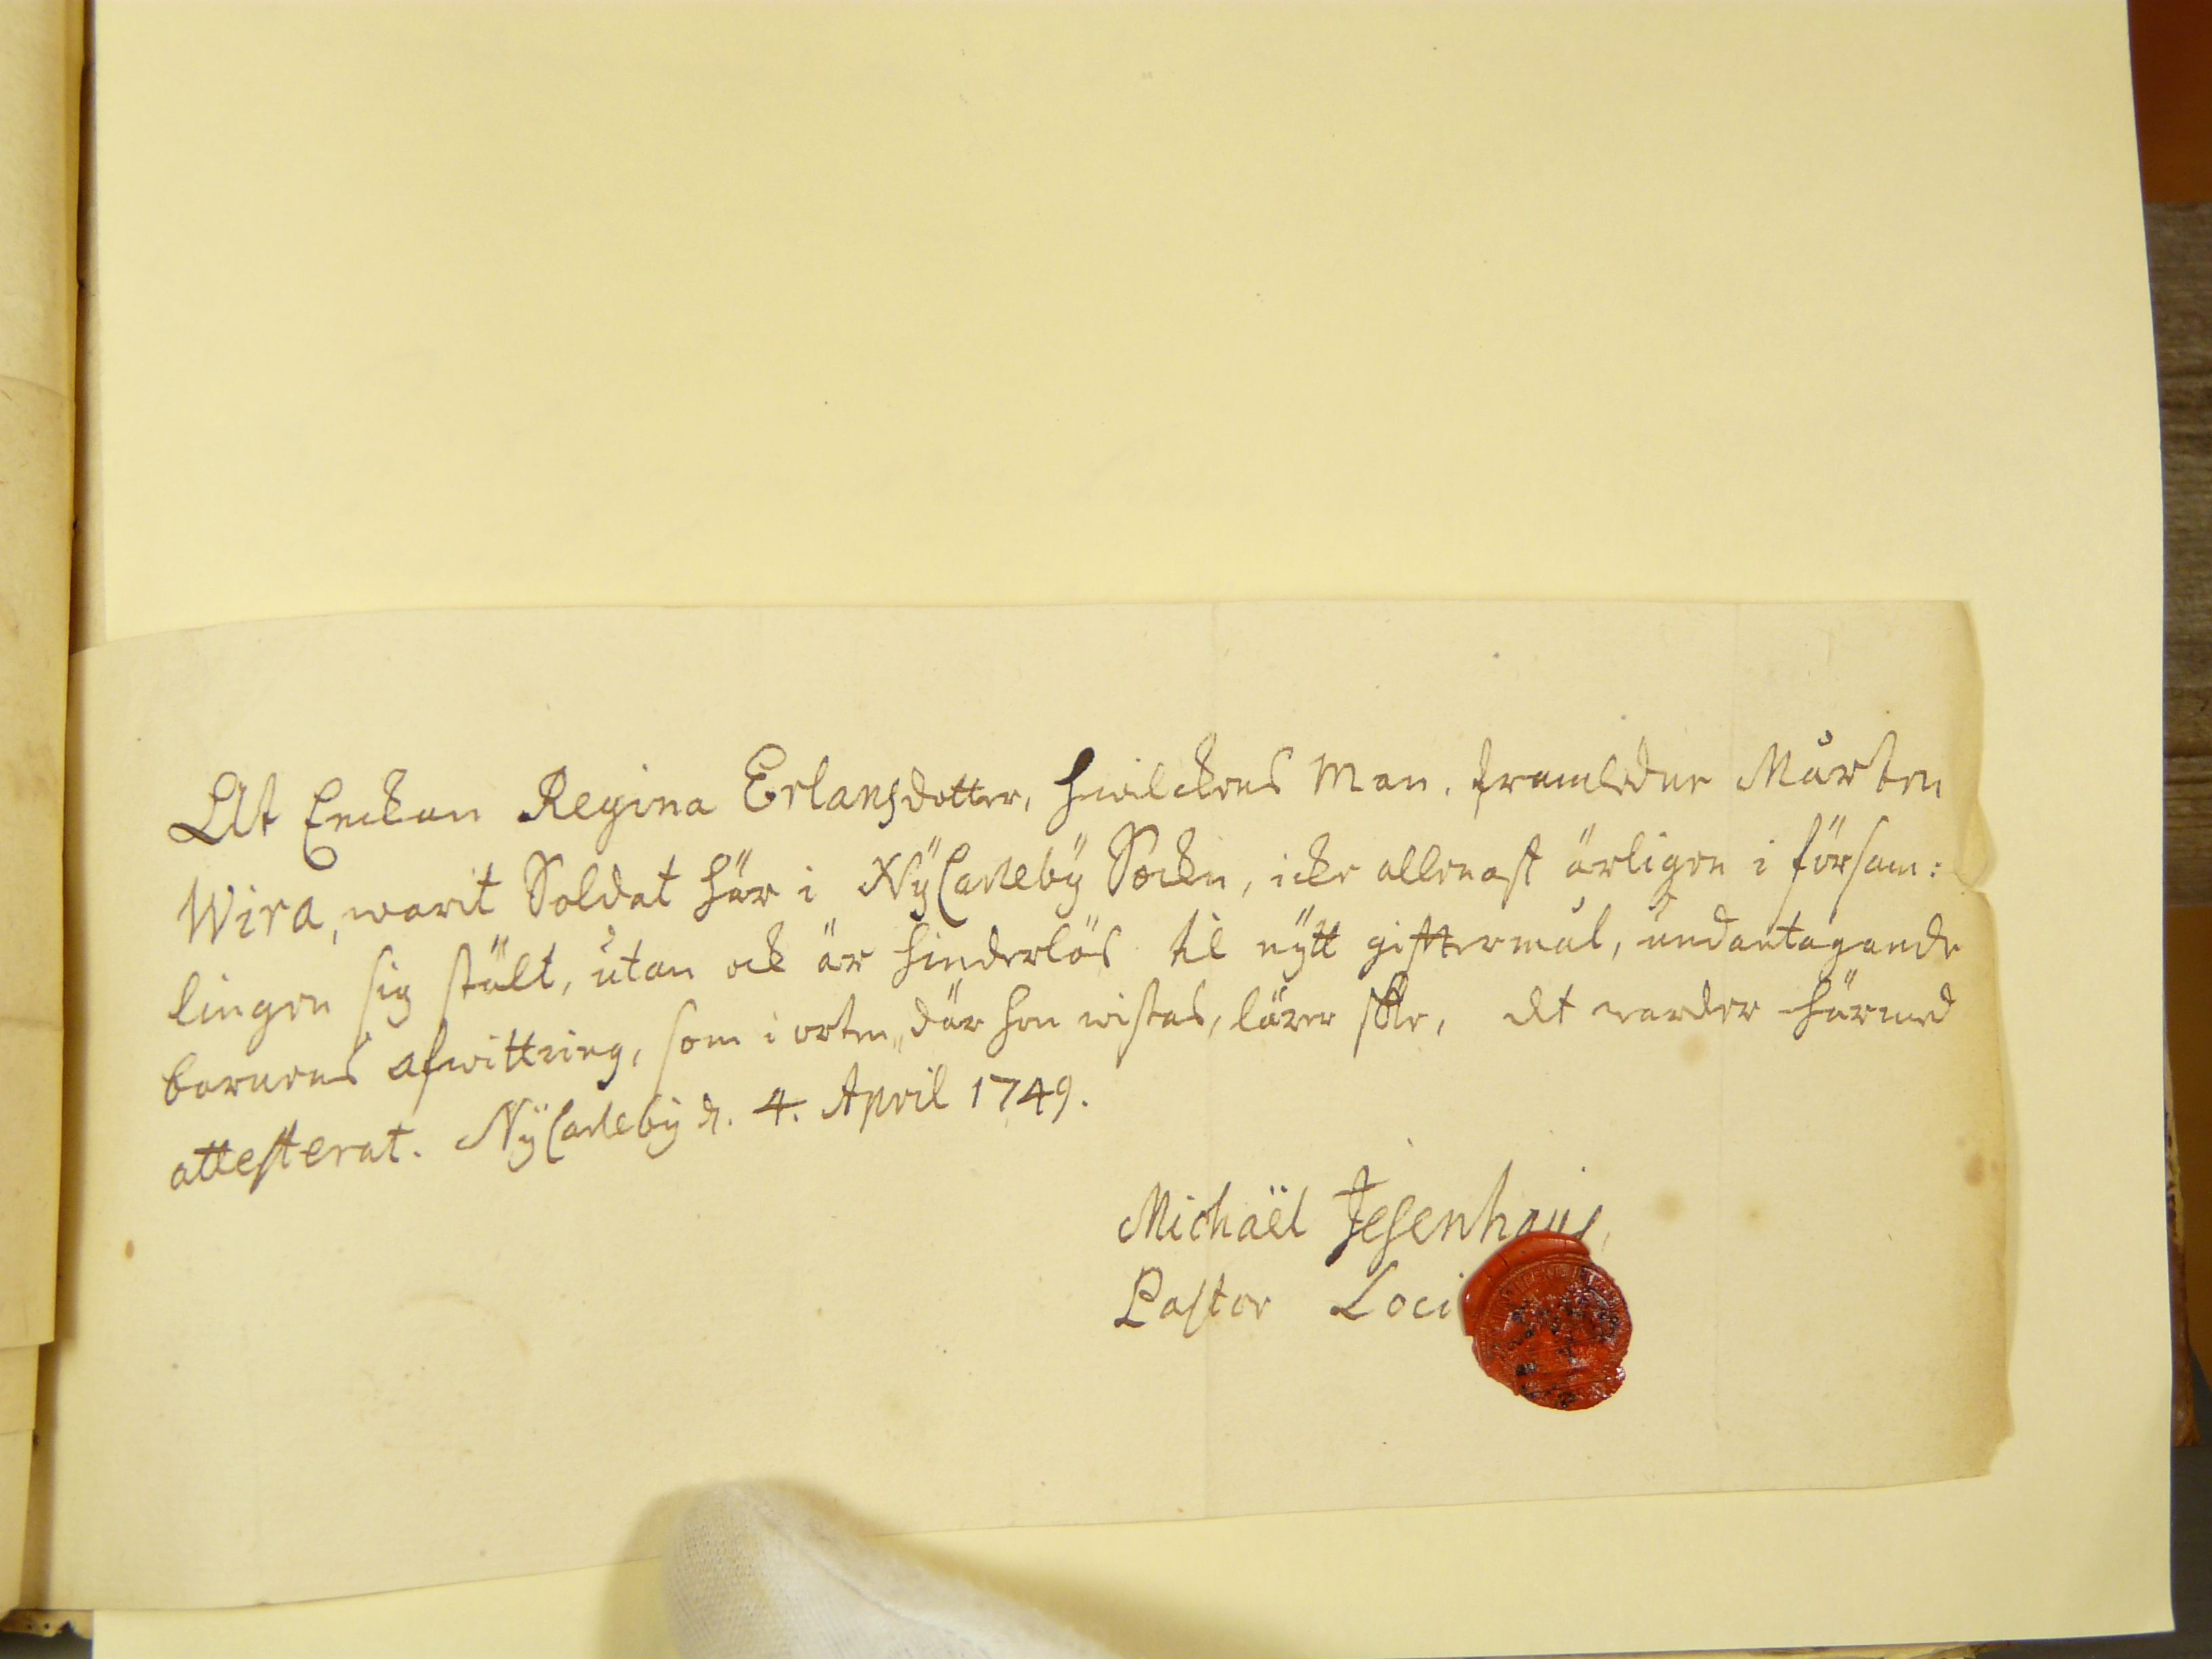 At Enckan Regina Erlansdotter, hwilckens Man, framledne Mårten
Wira, warit Soldat här i NyCarleby Sockn, icke allenast ärligen i försam:
lingen sig stält, utan ock är hinderlös til nytt gifftermål, undantagande
barnens afwittring, som i orten, där hon wistas, lärer ske, det warder härmed
attesterat. NyCarleby d. 4. April 1749.
Michaël Jesenhaus,
Pastor Loci